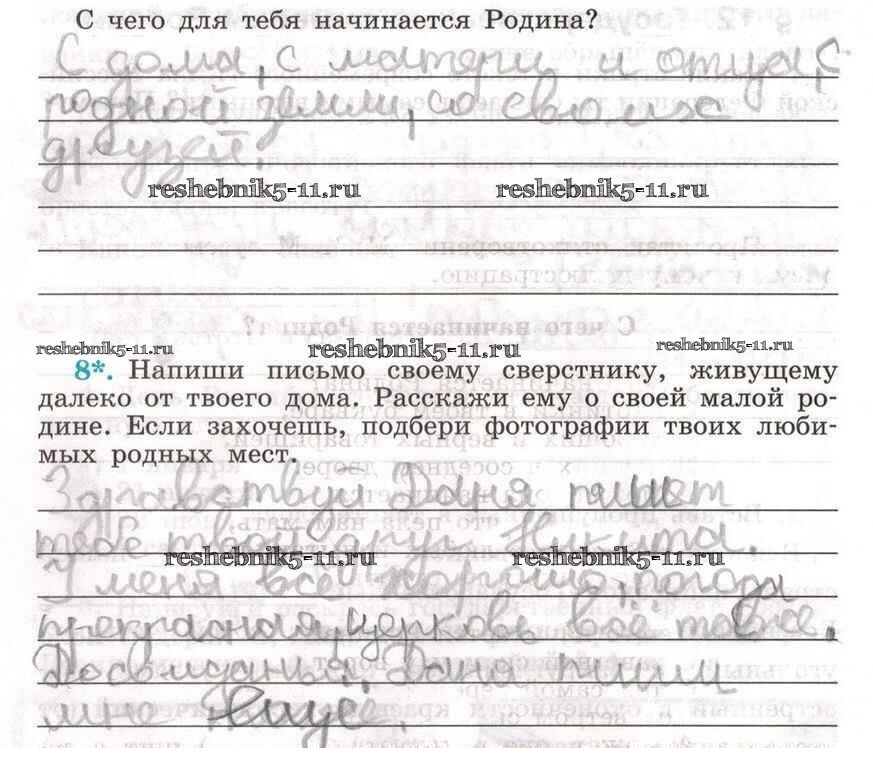 С чего для тебя начинается Родина?
С дома, с матери и отца, с
родной земли, со своих
друзей.
reshebnik5-11.ru reshebnik5-11.ru
reshebnik5-11.ru reshebnik5-11.ru reshebnik5-11.ru
8*. Напиши письмо своему сверстнику, живущему
далеко от твоего дома. Расскажи ему о своей малой ро-
дине. Если захочешь, подбери фотографии твоих люби-
мых родных мест.
Здравствуй Даня пишет
тебе твой друг Никита.
reshebnik5-11.ru reshebnik5-11.ru
У меня всё хорошо, погода
прекрасная, церковь всё таже.
Досвиданья. Даня пиши
мне ещё.